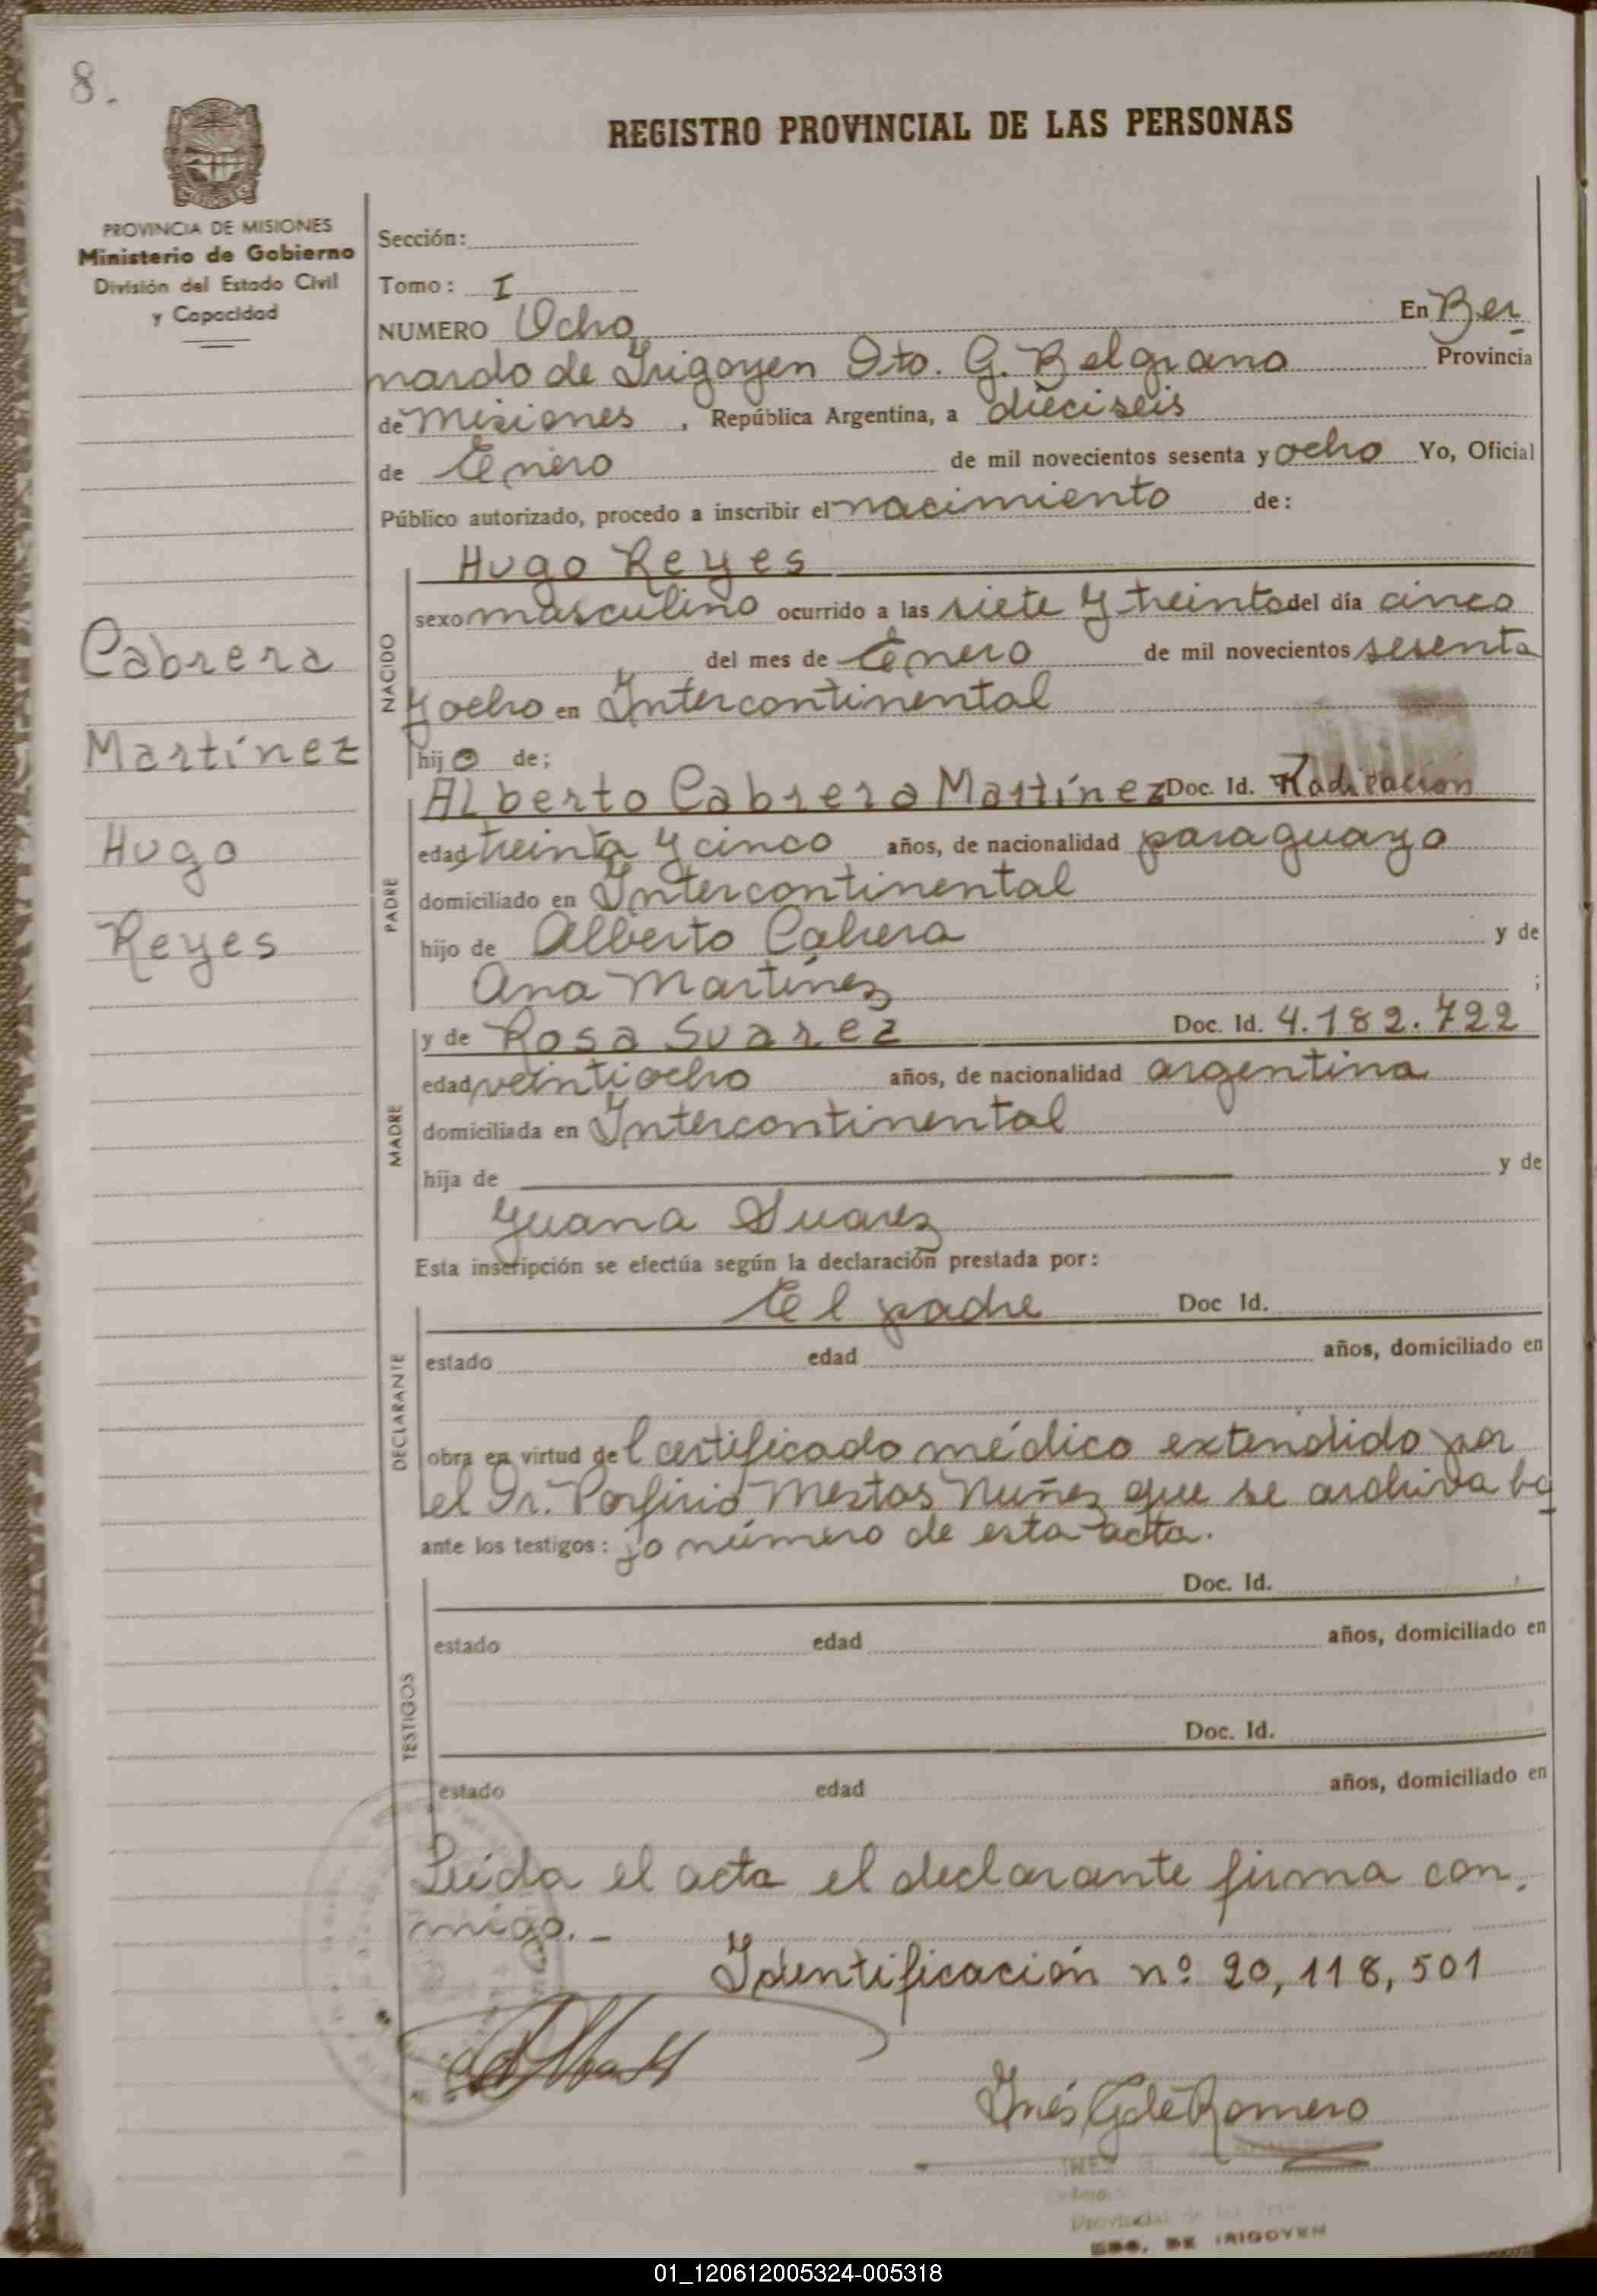 8.
REGISTRO PROVINCIAL DE LAS PERSONAS
PROVINCIA DE MISIONES
Ministerio de Gobierno
División del Estado Civil
y Capacidad
Sección:
Tomo: I
NUMERO Ocho En Ber
nardo de Irigoyen Dto. G. Belgrano Provincia
de Misiones, República Argentina, a dieciseis
de Enero de mil novecientos sesenta y ocho Yo, Oficial
Público autorizado, procedo a inscribir el nacimiento de:
Cabrera
Martínez
Hugo
Reyes
NACIDO
Hugo Reyes
sexo masculino ocurrido a las siete y treinta del día cinco
del mes de Enero de mil novecientos sesenta
y ocho en Intercontinental
hijo de;
PADRE
Alberto Cabrera Martínez Doc. Id. Radicación
edad treinta y cinco años, de nacionalidad paraguayo
domiciliado en Intercontinental
hijo de Alberto Cabrera y de
Ana Martínez ;
MADRE
y de Rosa Suarez Doc. Id. 4.182.722
edad veintiocho años, de nacionalidad argentina
domiciliada en Intercontinental
hija de y de
Juana Suarez
Esta inscripción se efectúa según la declaración prestada por:
DECLARANTE
El padre Doc Id.
estado edad años, domiciliado en
obra en virtud del certificado médico extendido por
el Dr. Porfirio Mestas Nuñez que se archiva ba
ante los testigos: jo número de esta acta.
TESTIGOS
Doc. Id.
estado edad años, domiciliado en
Doc. Id.
estado edad años, domiciliado en
Leída el acta el declarante firma con
migo. -
Identificación nº 20,118,501
Inés G de Romero
INES
Provincial de las
BDO. DE IRIGOYEN
01_120612005324-005318